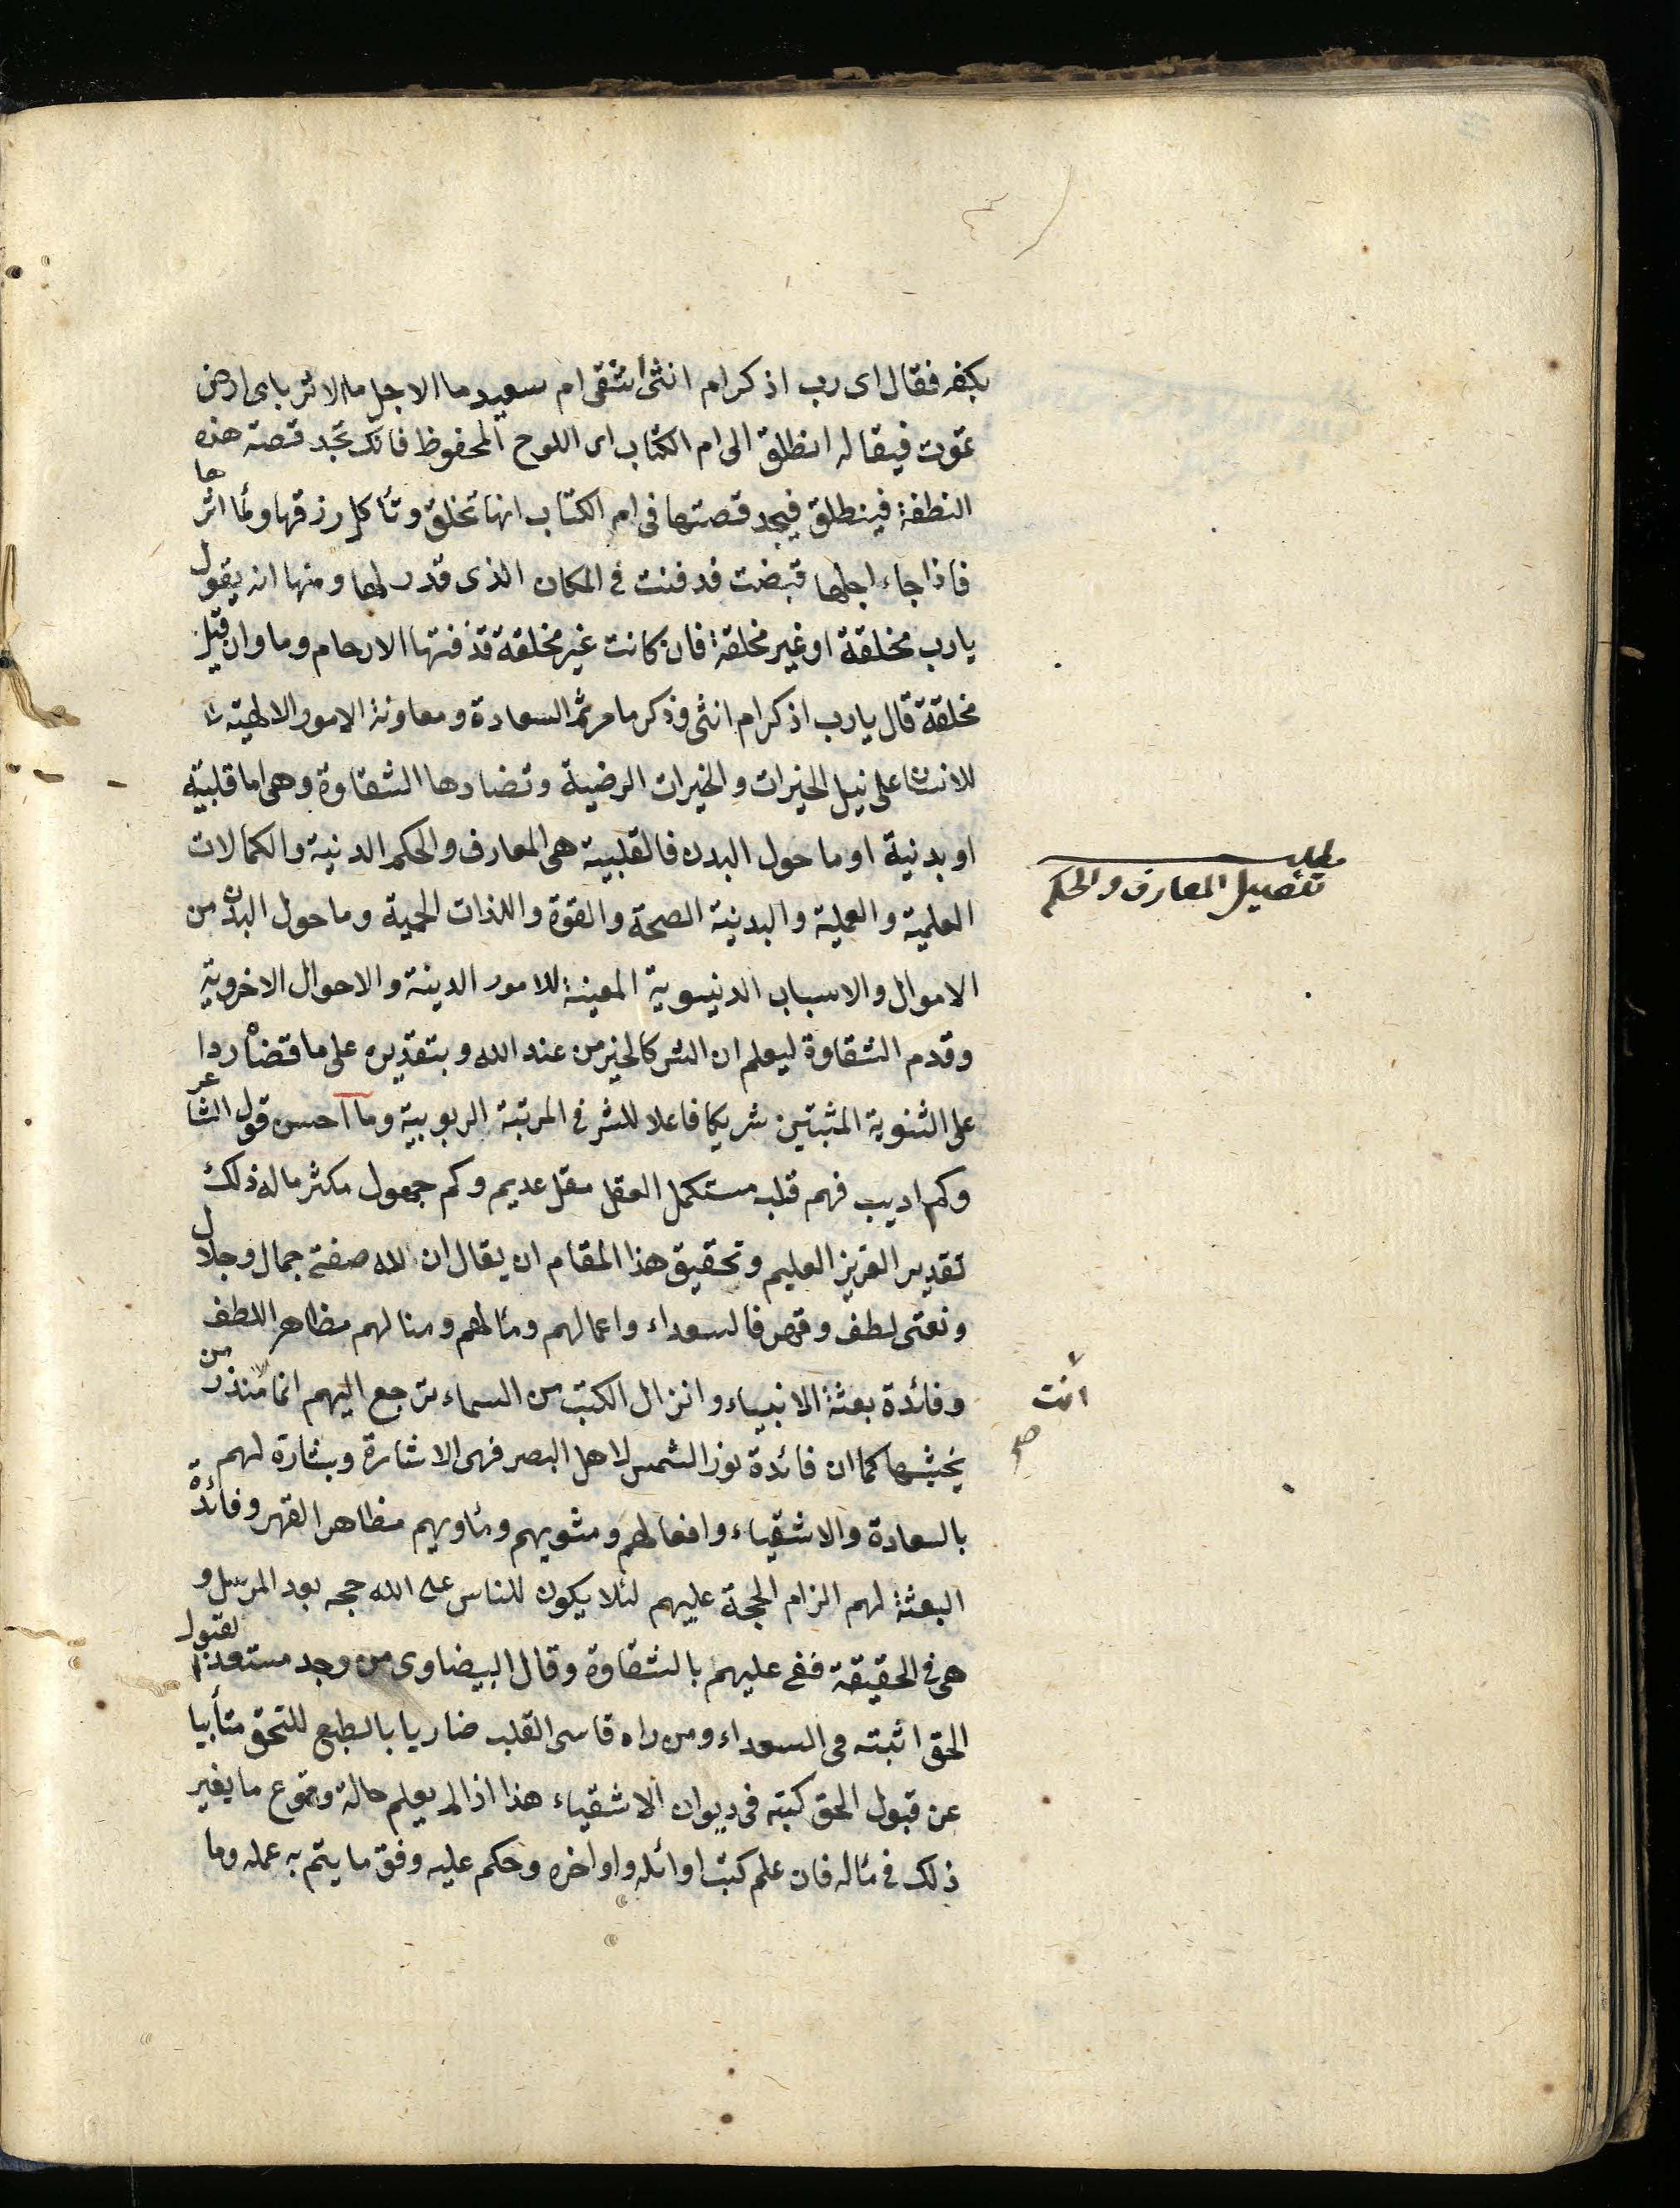 بكفه فقال اى رب اذكر ام انثى اشقى ام سعيد ما الاجل ما الاثر باى ارض
تموت فيقال له انطلق الى ام الكتاب اى اللوح المحفوظ فانك تجد قصة هذه
النطفة فينطلق فيجد قصتها فى ام الكتاب انها تخلق وتأكل رزقها وتطأ اثرها
فاذا جاء اجلها قبضت فدفنت فى المكان الذى قدر لها ومنها انه يقول
يارب مخلقة او غير مخلقة فان كانت غير مخلقة قذفتها الارحام وما وان قيل
مخلقة قال يارب اذكر ام انثى وذكر ما مر ثم السعادة ومعاونة الامور الالهية
للانسان على نيل الخيرات والخيرات الرضية وتضادها الشقاوة وهى اما قلبية
او بدنية او ما حول البدن فالقلبية هى المعارف والحكم الدنية والكمالات
مطلب
تفصيل المعارف والحكم
العلمية والعملية والبدنية الصحة والقوة واللذات الحمية وما حول البدن من
الاموال والاسباب الدنيوية المعينة للامور الدينة والاحوال الاخروية
وقدم الشقاوة ليعلم ان الشر كالخير من عند الله وبتقديره على ما قضاه ردا
على الثنوية المثبتين شريكا فاعلا للشر فى المرتبة الربوبية وما احسن قول الشاعر
وكم اديب فهم قلبه مستكمل العقل مقل عديم وكم جهول مكثر ماله ذلك
تقدير العزيز العليم وتحقيق هذا المقام ان يقال ان لله صفتى جمال وجلال
ونعتى لطف وقهر فالسعداء واعمالهم ومآلهم ومنالهم مظاهر اللطف
وفائدة بعثة الانبياء وانزال الكتب من السماء ترجع اليهم انما منذر من
انت
صح
يخشيها كما ان فائدة نور الشمس لاهل البصر فهى الاشارة وبشارة لهم
بالسعادة والاشقياء وافعالهم ومثويهم ومأويهم مظاهر القهر وفائدة
البعثة لهم الزام الحجة عليهم لئلا يكون للناس على الله حجة بعد الرسل و
هى فى الحقيقة فغى عليهم بالشقاوة وقال البيضاوى من وجد مستعدا لقبول
الحق اثبته فى السعداء ومن راه قاسى القلب ضاريا بالطبع للتحق متأبيا
عن قبول الحق كتبه فى ديوان الاشقياء هذا اذا لم يعلم حالة وقوع ما يغير
ذلك فى مآله فان علم كتب اوائله واواخره وحكم عليه وفق ما يتم به عمله وما